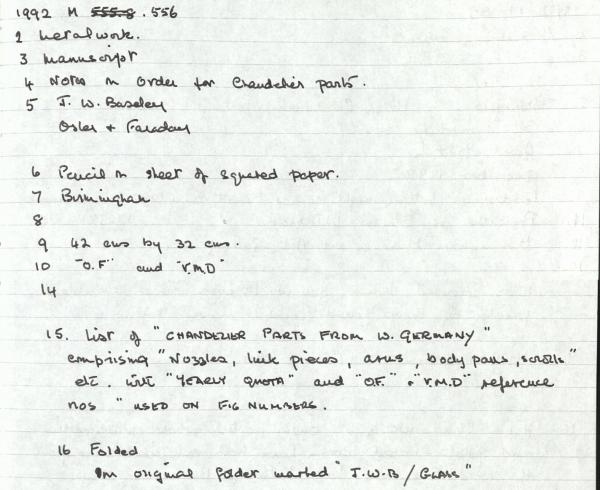 1992 M 555.8 .556
2 Metalwork.
3 Manuscript
4 Notes on order for Chandelier parts.
5 J. W. Baseley
Osler + Faraday
6 Pencil on sheet of squared paper.
7 Birmingham
8
9 42 cms by 32 cms.
10 "O.F" and "V.M.D"
14
15. List of "CHANDELIER PARTS FROM W. GERMANY"
comprising "Nozzles, link pieces, arms, body pans, scrolls"
etc. with "YEARLY QUOTA" and "O.F." + "V.M.D" reference
nos "USED ON FIG NUMBERS.
16 Folded
In original folder marked "J.W.B / GLASS"